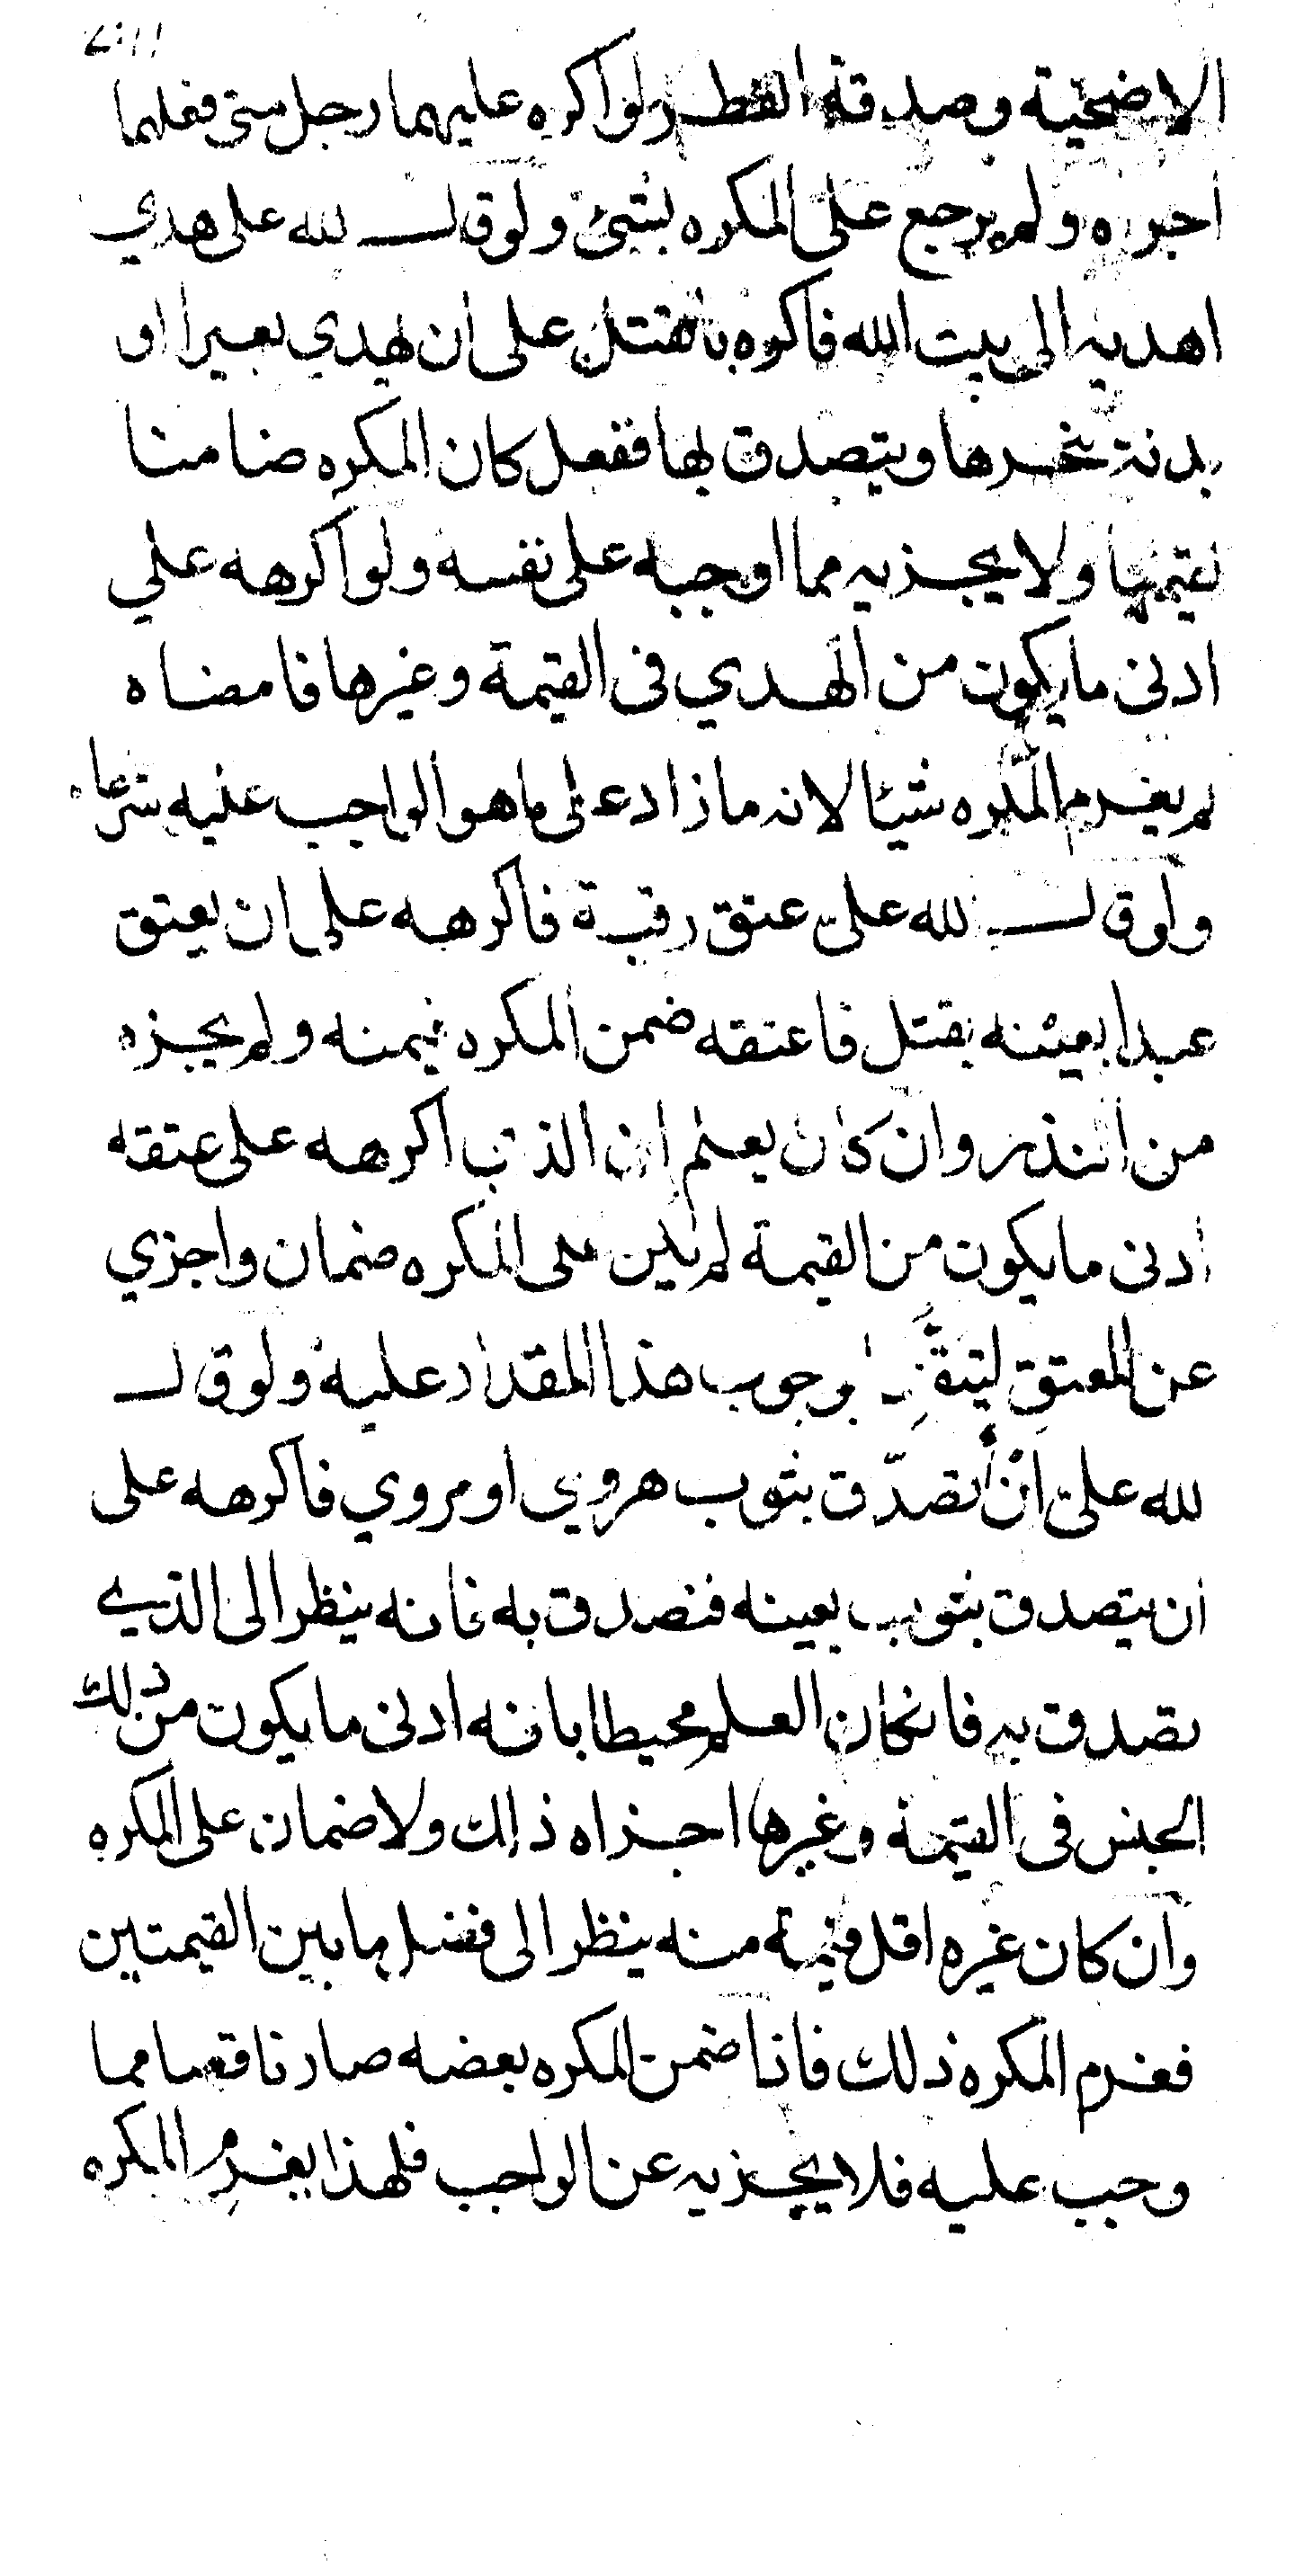 الاضحية وصدقة الفطر ولو اكره عليهما رجل حتى فعلهما
اجزاه ولم يرجع على المكره بشئ ولو قال لله على هدي
اهديه الى بيت الله فاكره بالقتل على ان يهدي بعيرا او
بدنة ينحرها ويتصدق بها ففعل كان المكره ضامنا
قيمتها ولا يجزيه مما اوجبه على نفسه ولو اكرهه علي
ادنى ما يكون من الهدي فى القيمة وغيرها فامضاه
لم يغرم المكره شيئا لانه ما زاد على ما هو الواجب عليه شرعا
ولو قال لله علىّ عتق رقبة فاكرهه على ان يعتق
عبدا بعينه بقتل فاعتقه ضمن المكره قيمته ولم يجزه
من النذر وان كان يعلم ان الذي اكرهه على عتقه
ادنى ما يكون من القيمة لم يكن على المكره ضمان واجزي
عن المعتق لتيقن بوجوب هذا المقدار عليه ولو قال
لله علىّ ان أتصدّق بثوب هروي او مروي فاكرهه على
ان يتصدق بثوب بعينه فتصدق به فانه ينظر الى الذي
تصدق به فان كان العلم محيطا بانه ادنى ما يكون من ذلك
الجنس فى القيمة وغيرها اجزاه ذلك ولا ضمان على المكره
وان كان غيره اقل قيمة منه ينظر الى فضل ما بين القيمتين
فغرم المكره ذلك فاذا ضمن المكره بعضه صار ناقصا مما
وجب عليه فلا يجزيه عن الواجب فلهذا يغرم المكره